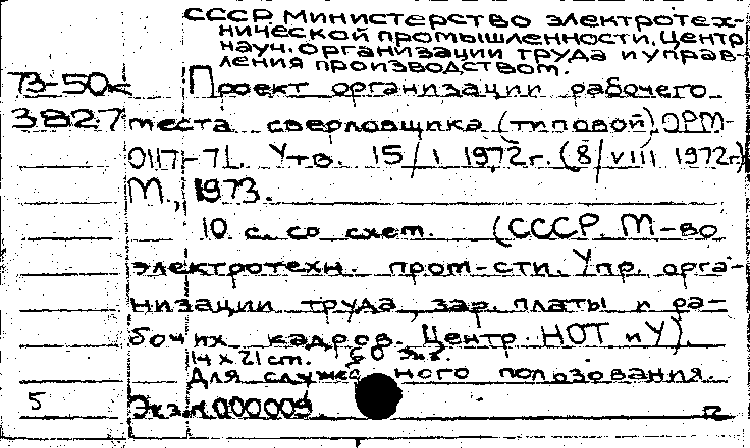 СССР. Министерство электротех-
нической промышленности. Центр
науч. организации труда и управ-
ления производством.
73-50к Проект организации рабочего
3827 места сверловщика (типовой) ОРМ-
0117-71. Утв. 15/I 1972г. (8/VIII 1972г.)
М., 1973.
10 с. со схем. (СССР. М-во
электротехн. пром-сти. Упр. орга-
низации труда, зар. платы и ра-
бочих кадров. Центр НОТ и У).
14 х 21 cm. 60 экз.
Для служебного пользования.
5 Экз. N 000009.